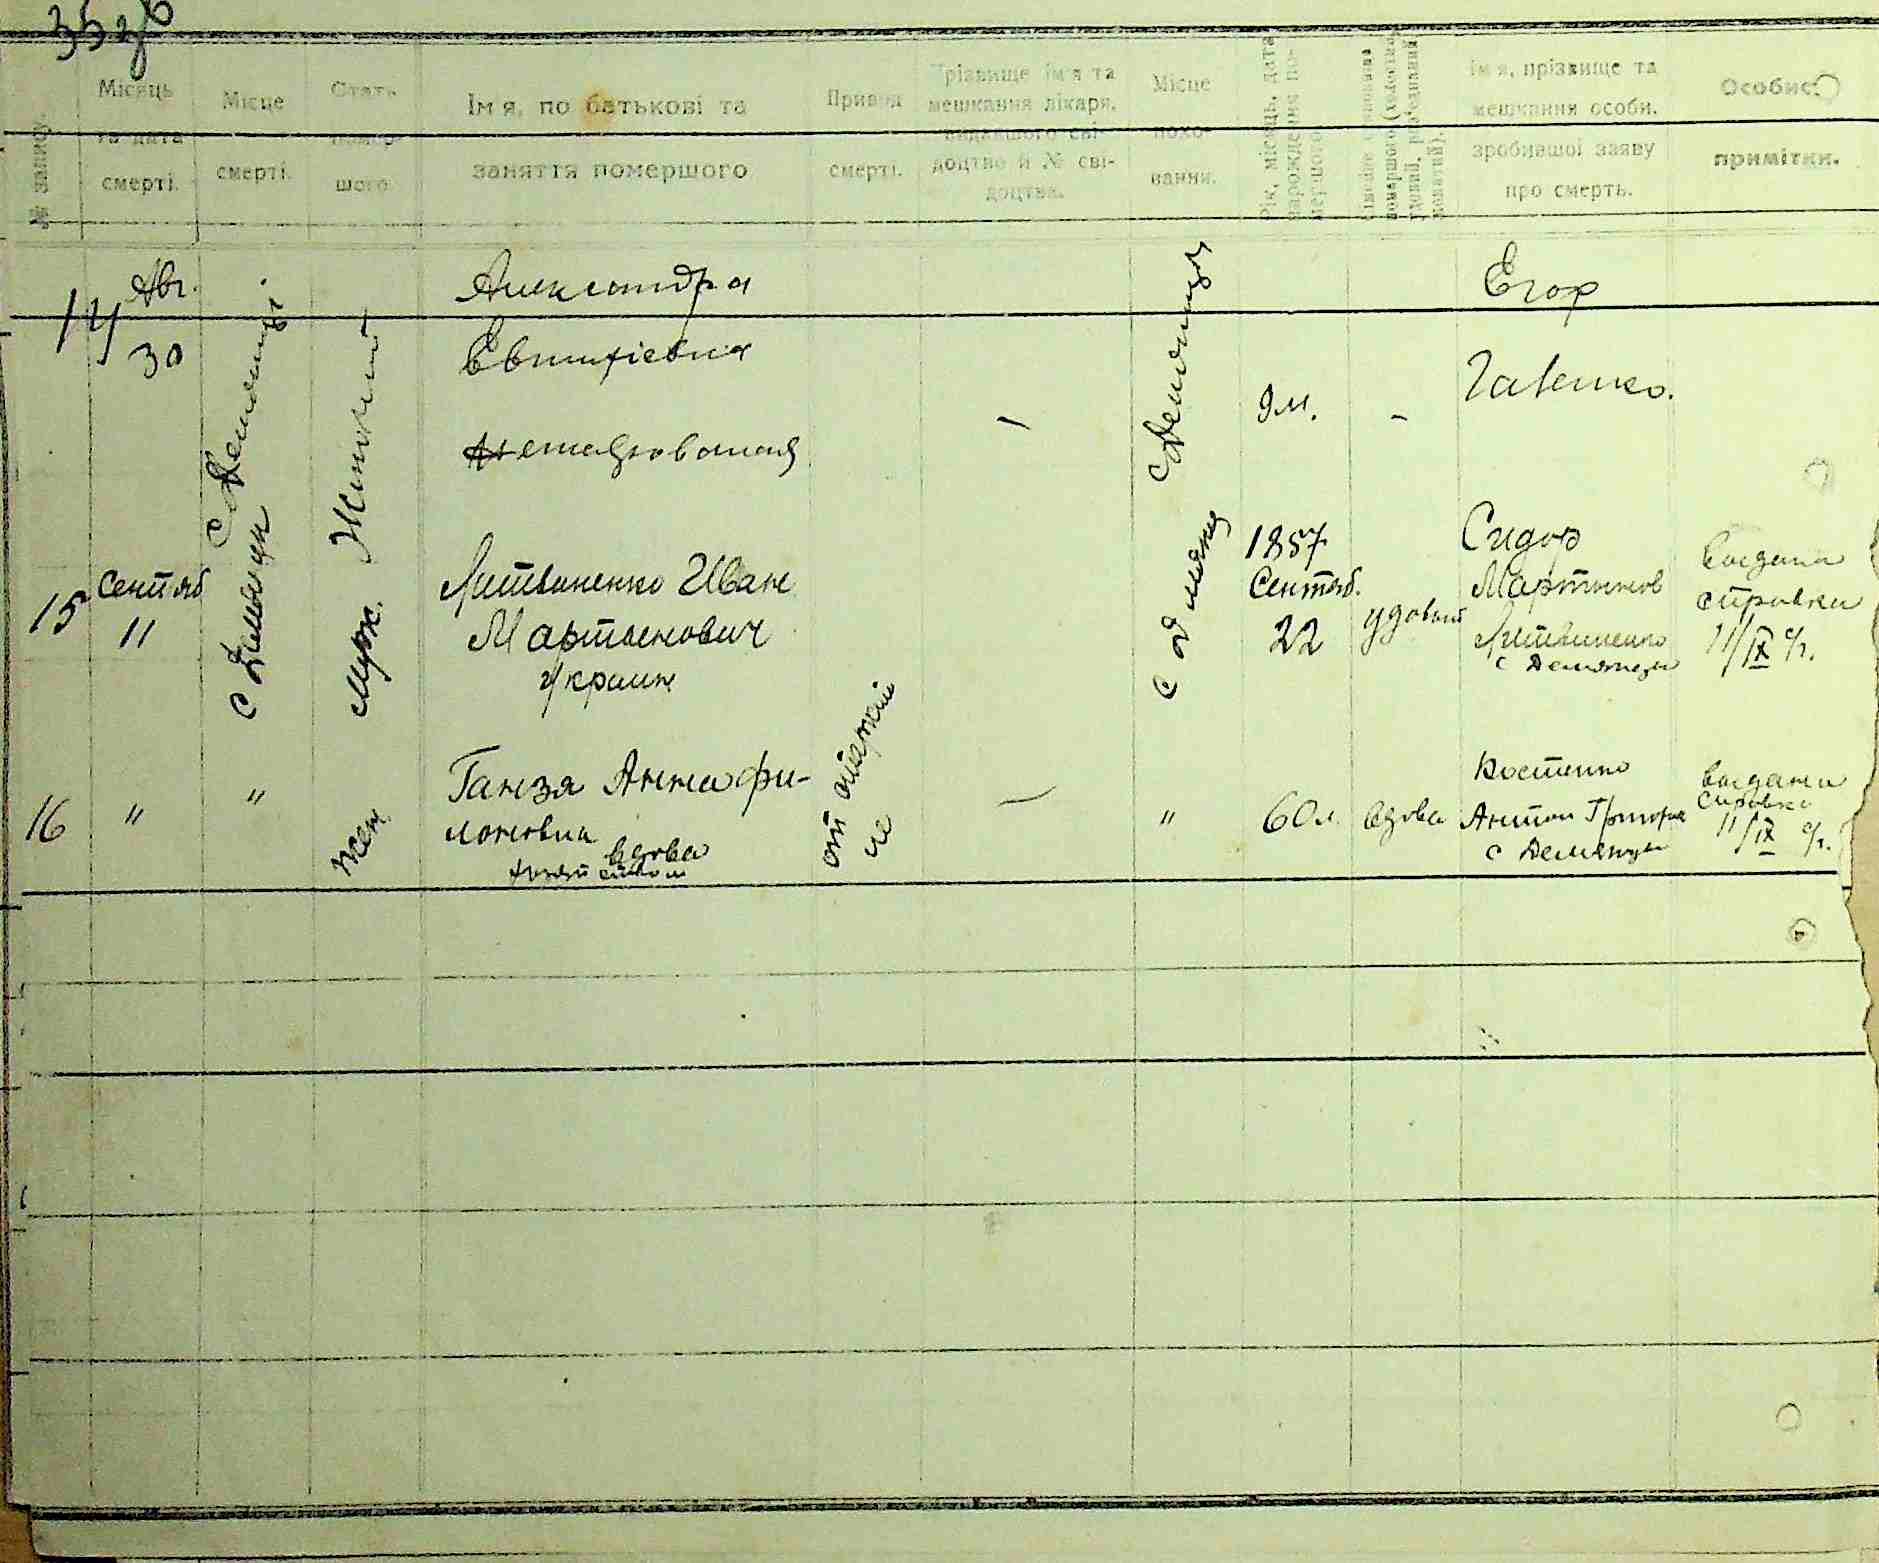 № запису.
Місяць та дата смерті.
Місце смерті.
Стать помер- шого
Ім'я, по батькові та заняття помершого
Привод смерті.
Прізвище ім'я та мешкання лікаря, видавшого сві- доцтво й № сві- доцтва.
Місце похо- вання.
Рік, місяць, дата народження по- мершого
Ім'я, прізвище та мешкання особи, зробившої заяву про смерть.
Особисті примітки.
14
Авг.
30
Александра
Евтихіевна
9 м.
–
Егор
15
Сентяб
11
муж.
Литвиненко Иван
Мартынович
украин
1857
Сентяб.
22
удовый
Сидор
Мартынов
Литвиненко
с Демянцы
выдана
справка
11/IX с/г.
16
"
"
жен.
Ганзя Анна Фи-
моновна
вдова
от старости
—
"
60 л.
вдова
Костенко
Антон Григор
с Демянцы
выдана
справка
11/IX с/г.